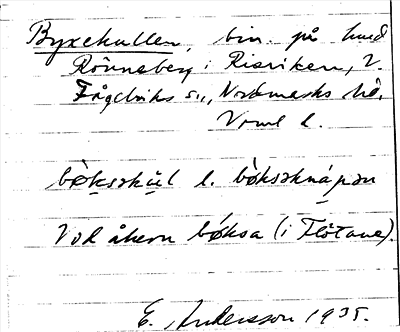 Byxekullen, bin. på hmd
Rönneberg i Risviken, V.
Fågelviks sn, Nordmarks hd,
Vrml l.
bòksekùl l. bòkseknápen
Vid åkern bóksa (i Flötane).
E. Andersson 1935.